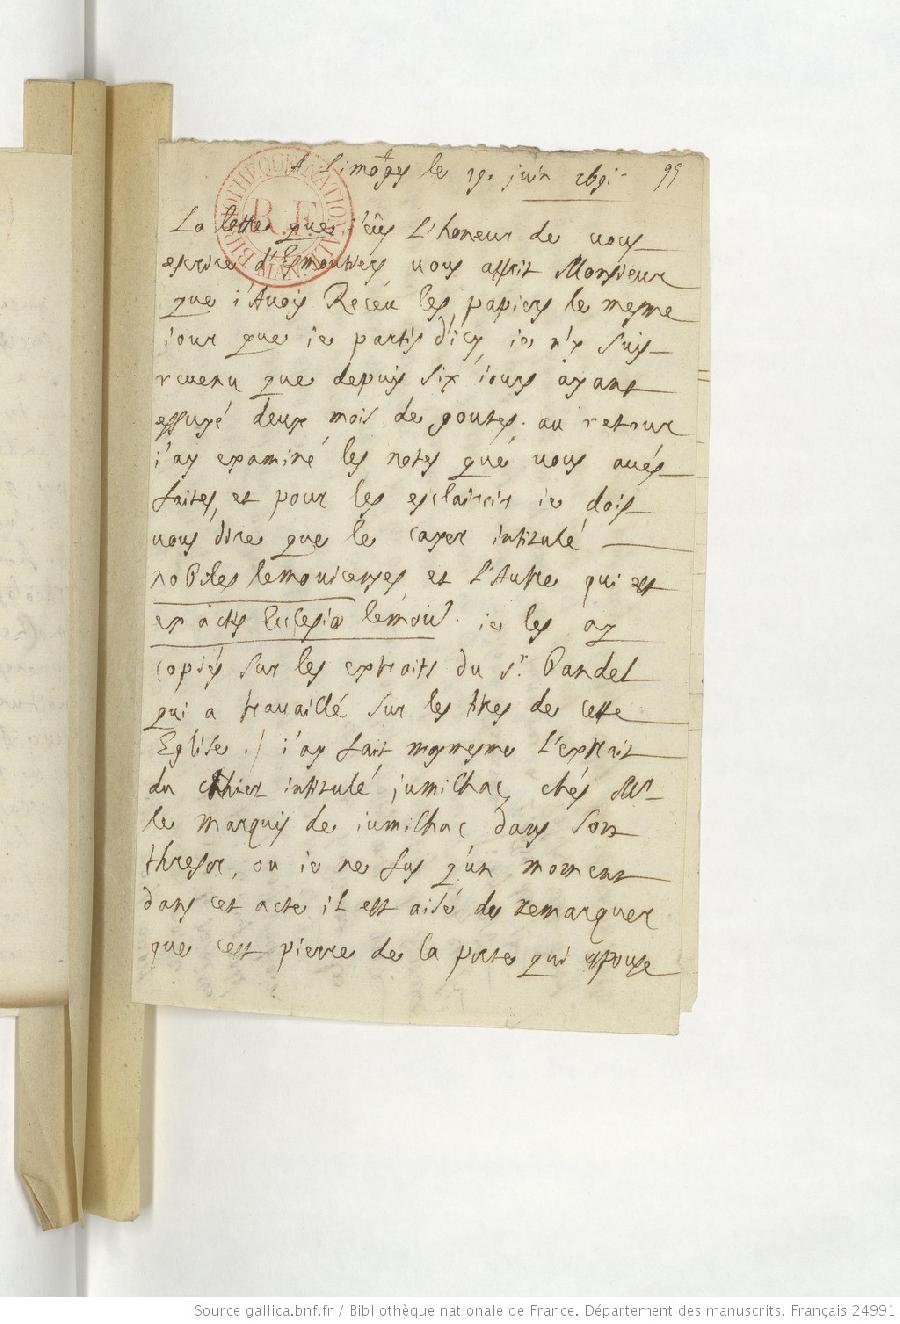 A Limoges le 19e juin 1691 99
La lettre que i'eus l'honeur de vous
escrire d'Esmoutiers vous assit Monsieur
que i'Avois Receu les papiers le mesme
iour que ie partis d'icy ie n'y suis
revenu que depuis six iours ayant
essuyé deux mois de goutes. au retour
i'ay examiné les notes que vous avés
faites, et pour les esclaircir ie dois
vous dire que le cayer intitulé
nobiles lemovicenses et l'Autre qui est
ex actis Ecclesiæ lemov. ie les ay
copiés sur les extraits du Sr. Bandel
qui a travaillé sur les titres de cette
Eglise. / i'ay fait moymesme l'extrait
du cahier intitulé jumilhac, chés Mr
le marquis de iumilhac dans son
thresor, ou ie ne fus qu'un moment
dans cet acte il est aisé de remarquer
que c'est pierre de la porte qui espouse
BIBLIOTHEQUE NATIONALE
R.F.
MANUSCRITS
Source gallica.bnf.fr / Bibliothèque nationale de France. Département des manuscrits. Français 24991